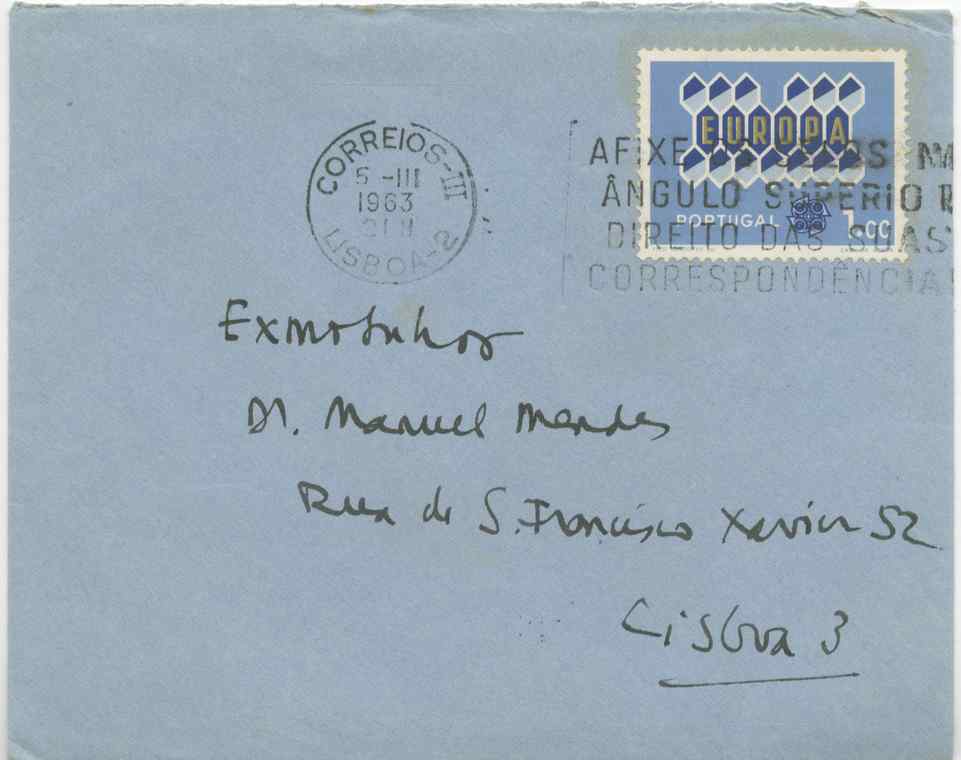 CORREIOS-III
5.-III
1963
21 H
LISBOA-2
EUROPA
PORTUGAL 1.00
AFIXE OS SELOS N
ÂNGULO SUPERIOR
DIREITO DAS SUAS
CORRESPONDÊNCIAS
Exmo Senhor
Dr. Manuel Mendes
Rua de S. Francisco Xavier 52
Lisboa 3